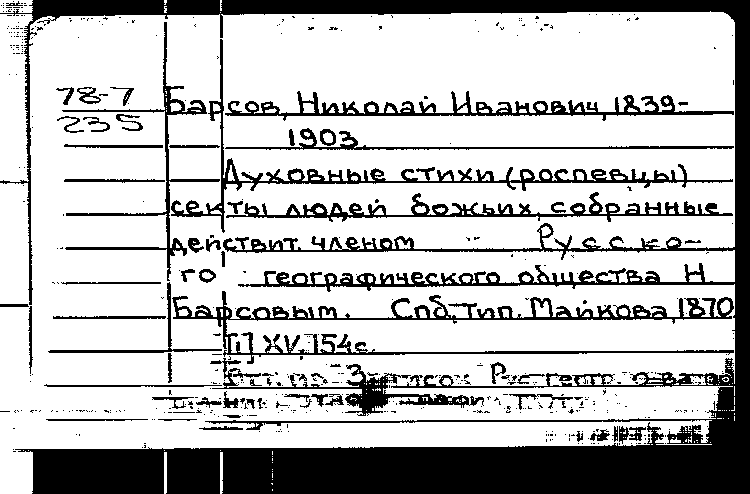 78-7 Барсов, Николай Иванович, 1839-
235 1903.
Духовные стихи (роспевцы)
секты людей божьих, собранные
действит. членом Русско-
го географического общества Н.
Барсовым. Спб, тип. Майкова, 1870
[1] XV, 154с.
Отт. из Записок Рус геогр. о-ва по